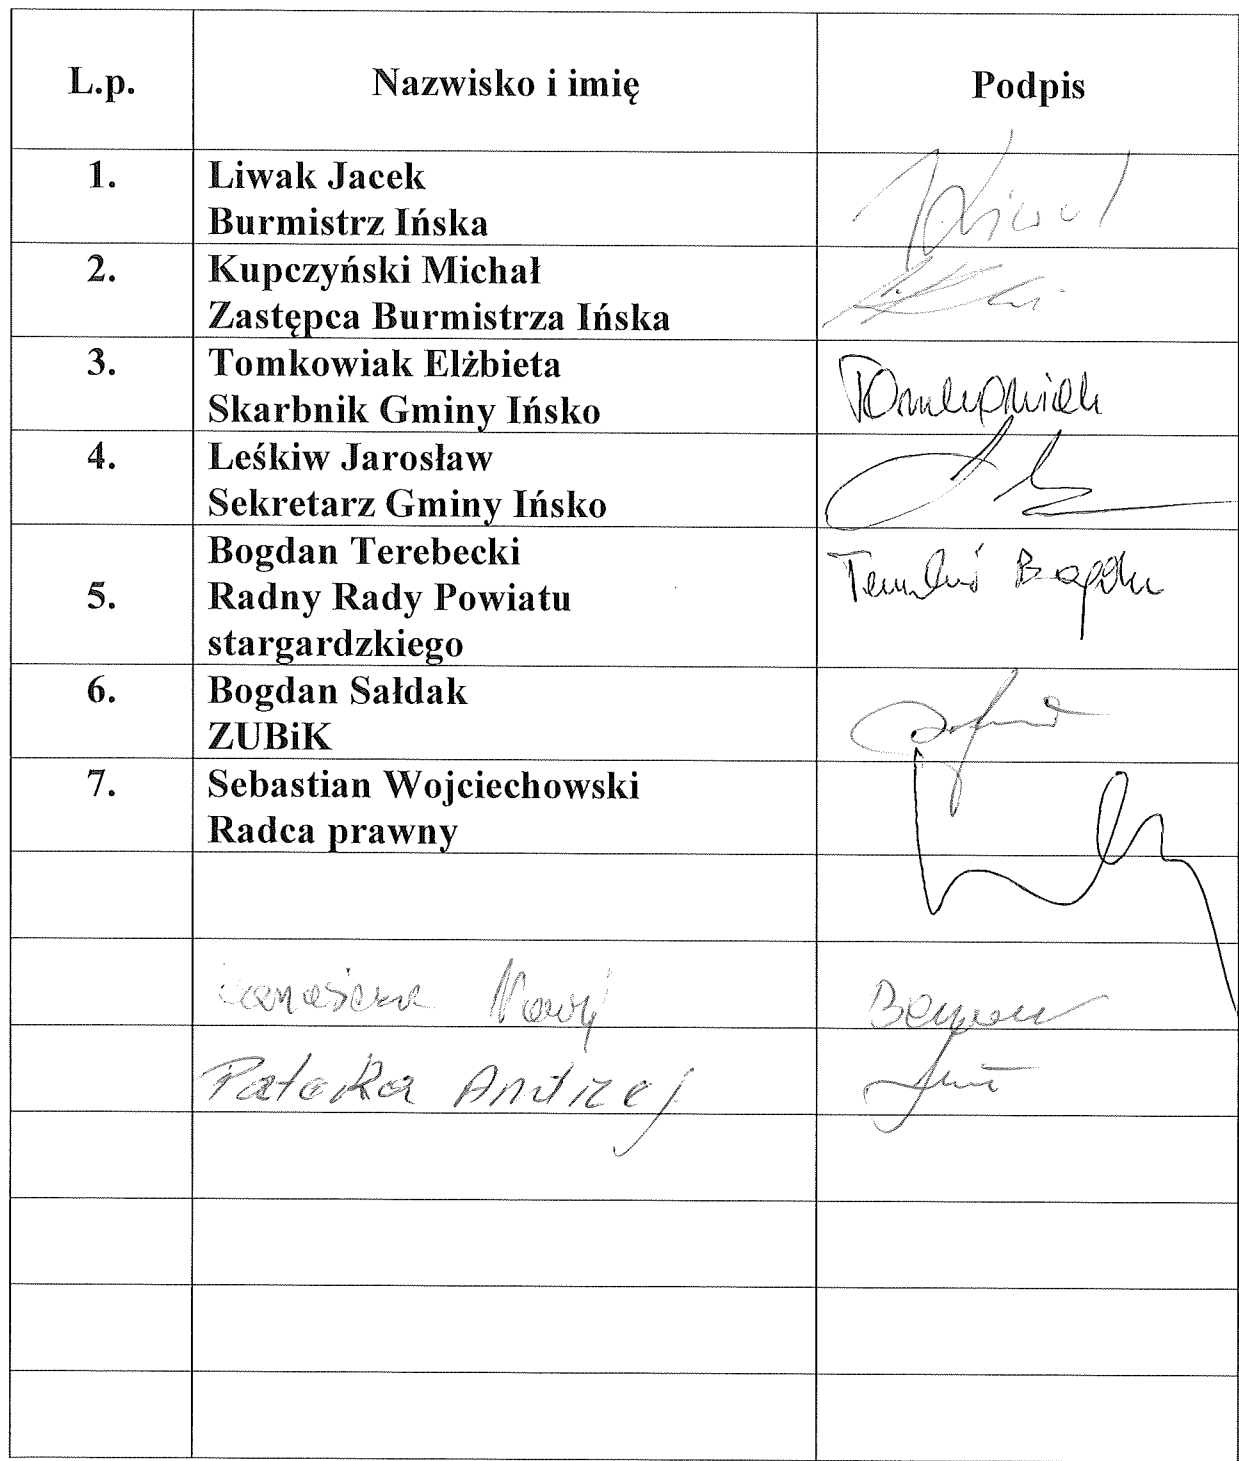 L.p. Nazwisko i imię Podpis
1. Liwak Jacek
Burmistrz Ińska
2. Kupczyński Michał
Zastępca Burmistrza Ińska
3. Tomkowiak Elżbieta Tomkowiak
Skarbnik Gminy Ińsko
4. Leśkiw Jarosław
Sekretarz Gminy Ińsko
Bogdan Terebecki
5. Radny Rady Powiatu
stargardzkiego
6. Bogdan Sałdak
ZUBiK
7. Sebastian Wojciechowski
Radca prawny
Pataka Andrzej